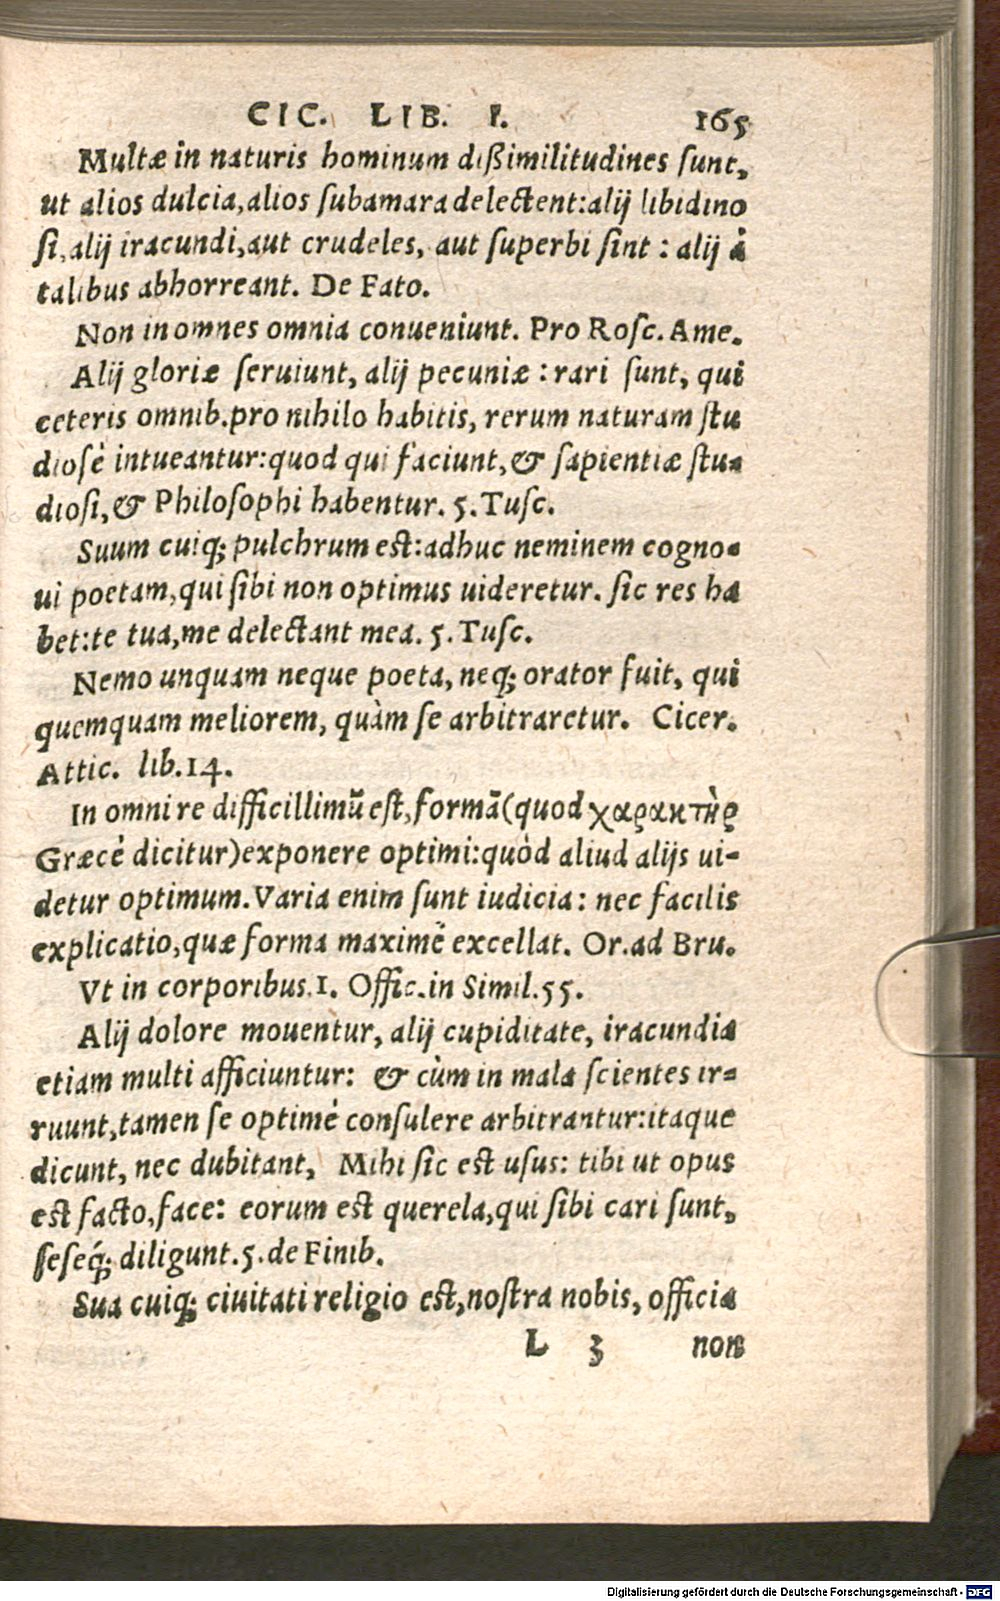 CIC. LIB. I. 165
Multæ in naturis hominum dißimilitudines sunt,
ut alios dulcia, alios subamara delectent: alij libidino
si, alij iracundi, aut crudeles, aut superbi sint : alij à
talibus abhorreant. De Fato.
Non in omnes omnia conueniunt. Pro Rosc. Ame.
Alij gloriæ seruiunt, alij pecuniæ : rari sunt, qui
ceteris omnib. pro nihilo habitis, rerum naturam stu
diosè intueantur: quod qui faciunt, & sapientiæ stu-
diosi, & Philosophi habentur. 5. Tusc.
Suum cuiq; pulchrum est: adhuc neminem cogno-
ui poetam, qui sibi non optimus uideretur. sic res ha
bet: te tua, me delectant mea. 5. Tusc.
Nemo unquam neque poeta, neq; orator fuit, qui
quemquam meliorem, quàm se arbitraretur. Cicer.
Attic. lib. 14.
In omni re difficillimū est, formā (quod χαρακτὴρ
Græcè dicitur) exponere optimi: quòd aliud alijs ui-
detur optimum. Varia enim sunt iudicia: nec facilis
explicatio, quæ forma maximè excellat. Or. ad Bru.
Vt in corporibus. 1. Offic. in Simil. 55.
Alij dolore mouentur, alij cupiditate, iracundia
etiam multi afficiuntur: & cùm in mala scientes ir-
ruunt, tamen se optimè consulere arbitrantur: itaque
dicunt, nec dubitant, Mihi sic est usus: tibi ut opus
est facto, face: eorum est querela, qui sibi cari sunt,
seseq́; diligunt. 5. de Finib.
Sua cuiq; ciuitati religio est, nostra nobis, officia
L 3 non
Digitalisierung gefördert durch die Deutsche Forschungsgemeinschaft - DFG